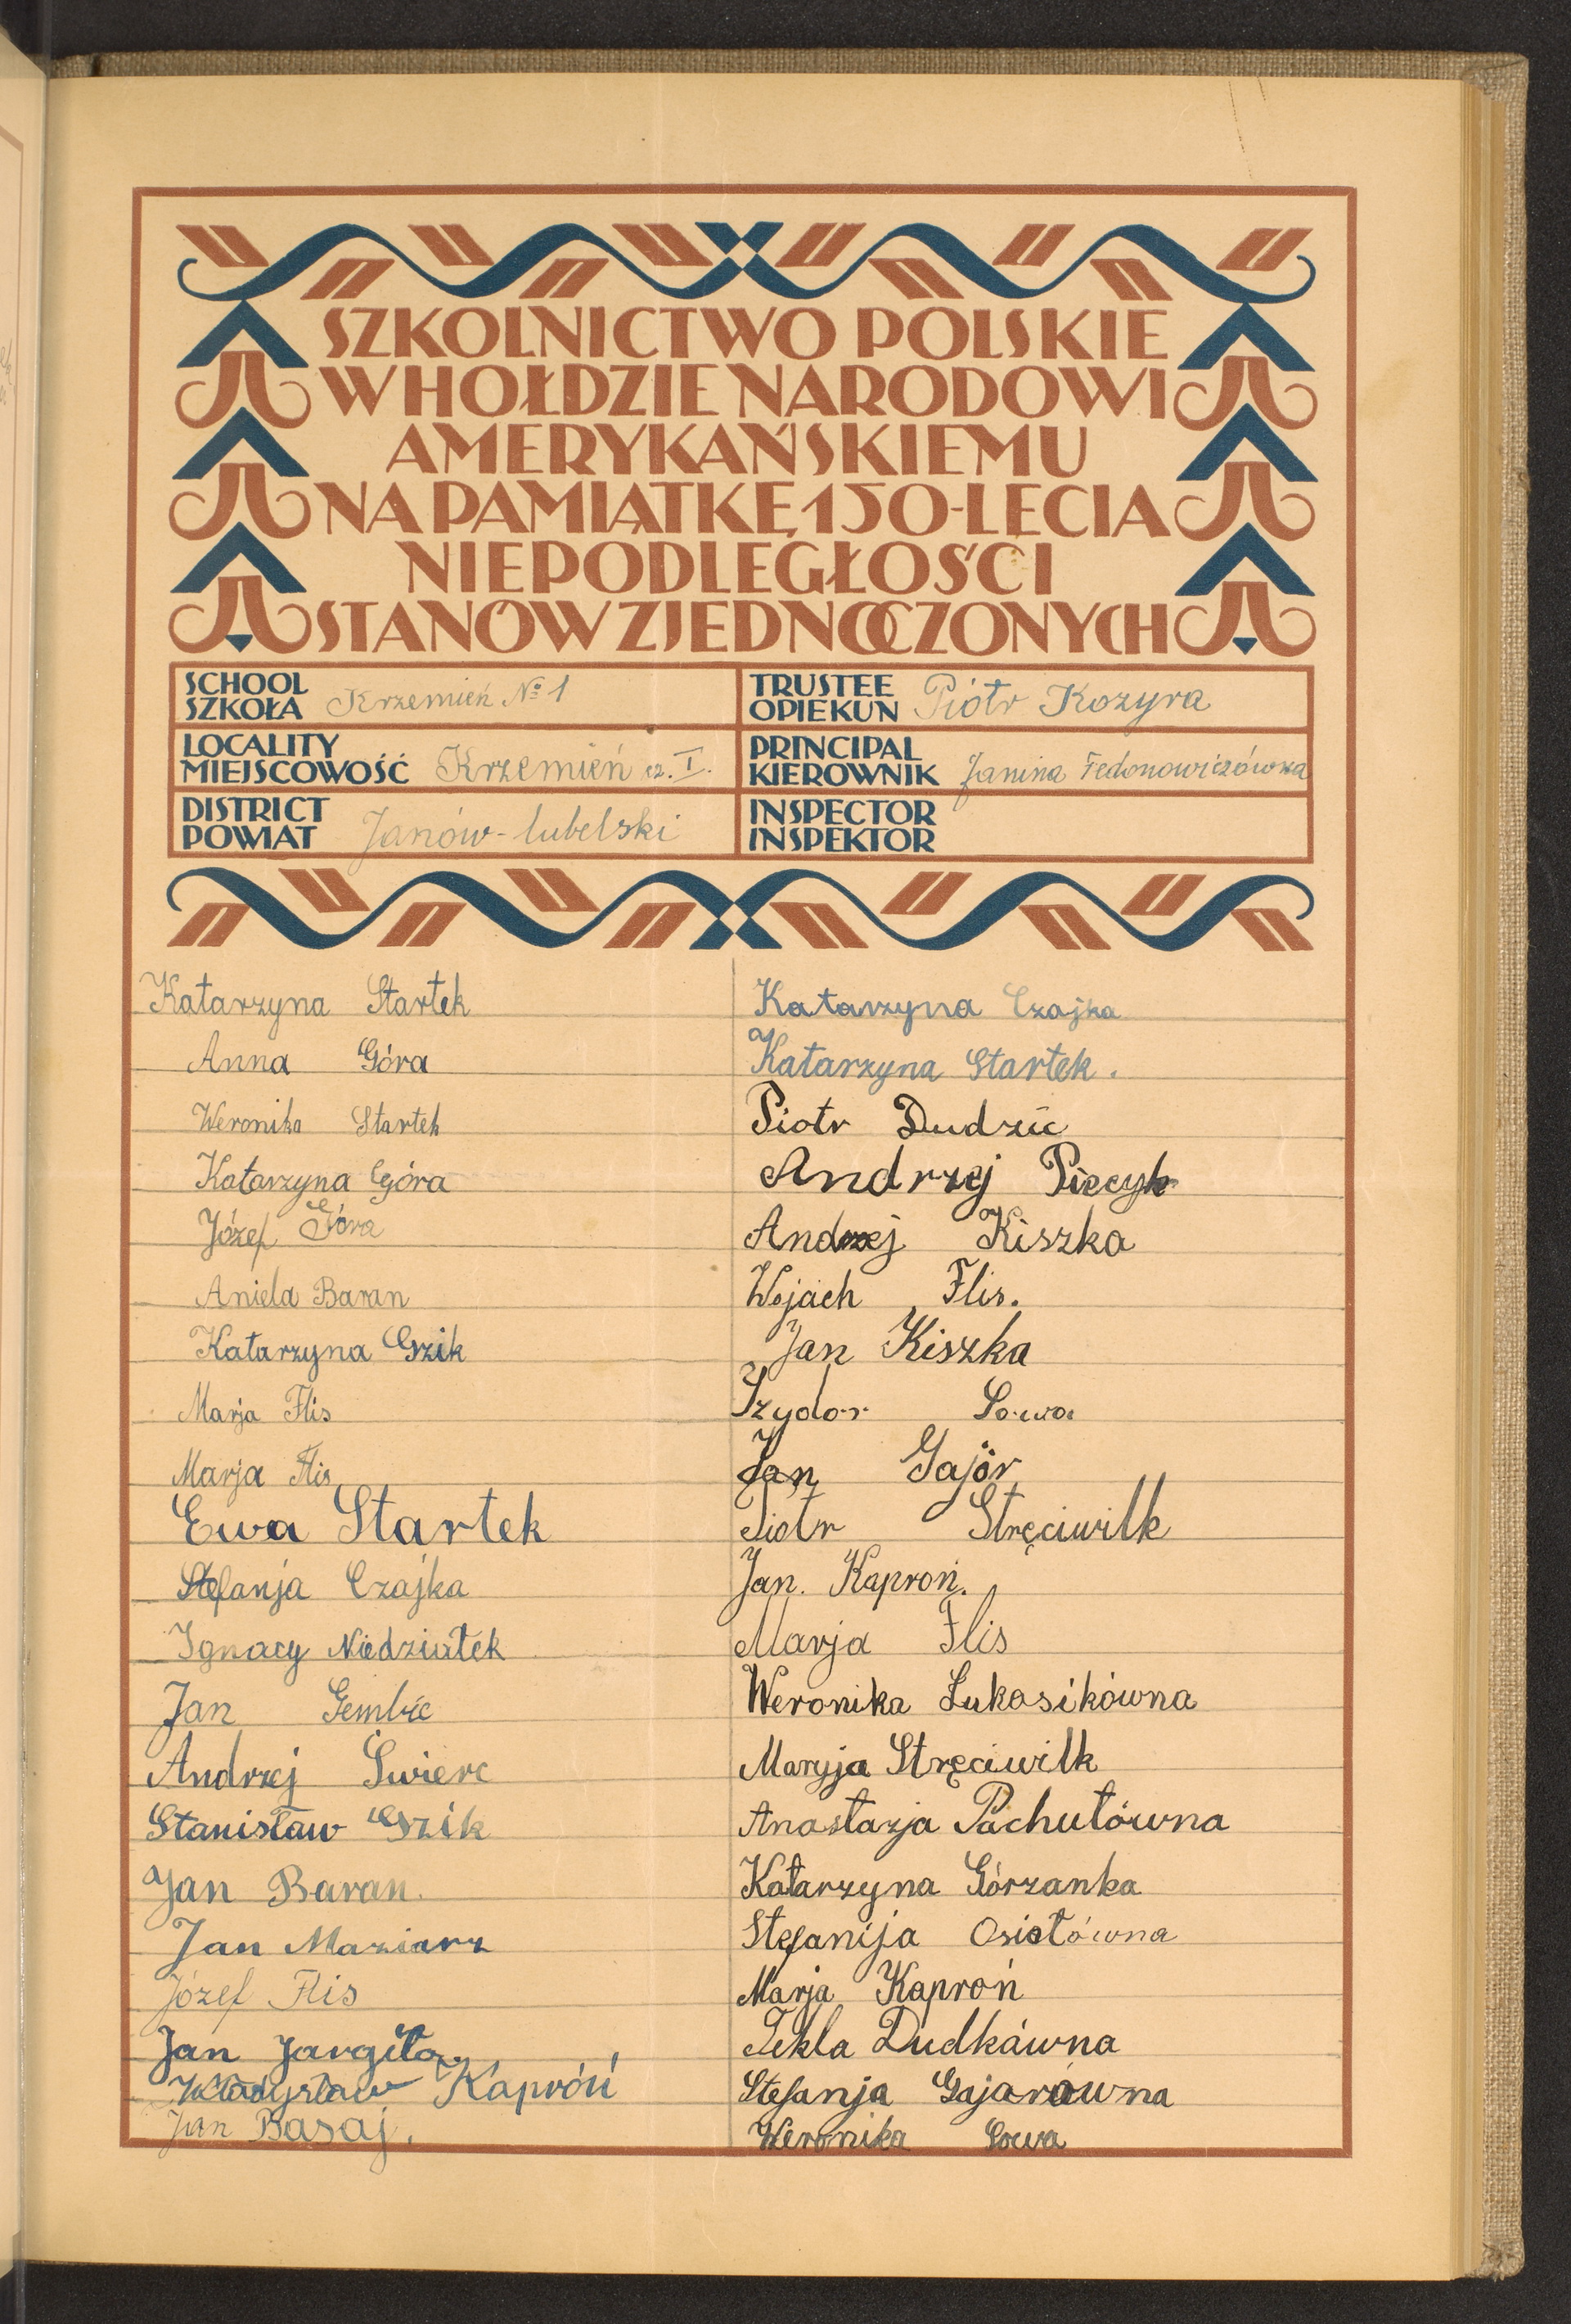 SZKOLNICTWO POLSKIE
W HOŁDZIE NARODOWI
AMERYKAŃSKIEMU
NA PAMIĄTKĘ 150-LECIA
NIEPODLEGŁOŚCI
STANÓW ZJEDNOCZONYCH
SCHOOL
SZKOŁA Krzemień № 1
TRUSTEE
OPIEKUN Piotr Kozyra
LOCALITY
MIEJSCOWOŚĆ Krzemień cz. I.
PRINCIPAL
KIEROWNIK Janina Fedonowiczówna
DISTRICT
POWIAT Janów-lubelski
INSPECTOR
INSPEKTOR
Katarzyna Startek
Anna Góra
Weronika Startek
Katarzyna Góra
Józef Góra
Aniela Baran
Katarzyna Gzik
Marja Flis
Marja Flis
Ewa Startek
Stefanja Czajka
Ignacy Niedziałek
Jan Gembic
Andrzej Świerc
Stanisław Gzik
Jan Baran.
Jan Maziarz
Józef Flis
Jan Jargiło.
Władysław Kaproń
Jan Basaj.
Katarzyna Czajka
Katarzyna Startek.
Piotr Dudzic
Andrzej Piecyk
Andrzej Kiszka
Wojach Flis.
Jan Kiszka
Izydor Sowa
Jan Gajór
Piotr Stręciwilk
Jan. Kaproń.
Marja Flis
Weronika Łukasikówna
Maryja Stręciwilk
Anastazja Pachutówna
Katarzyna Górzanka
Stefanija Osiołówna
Marja Kaproń
Tekla Dudkówna
Stefanja Gajorówna
Weronika Sowa